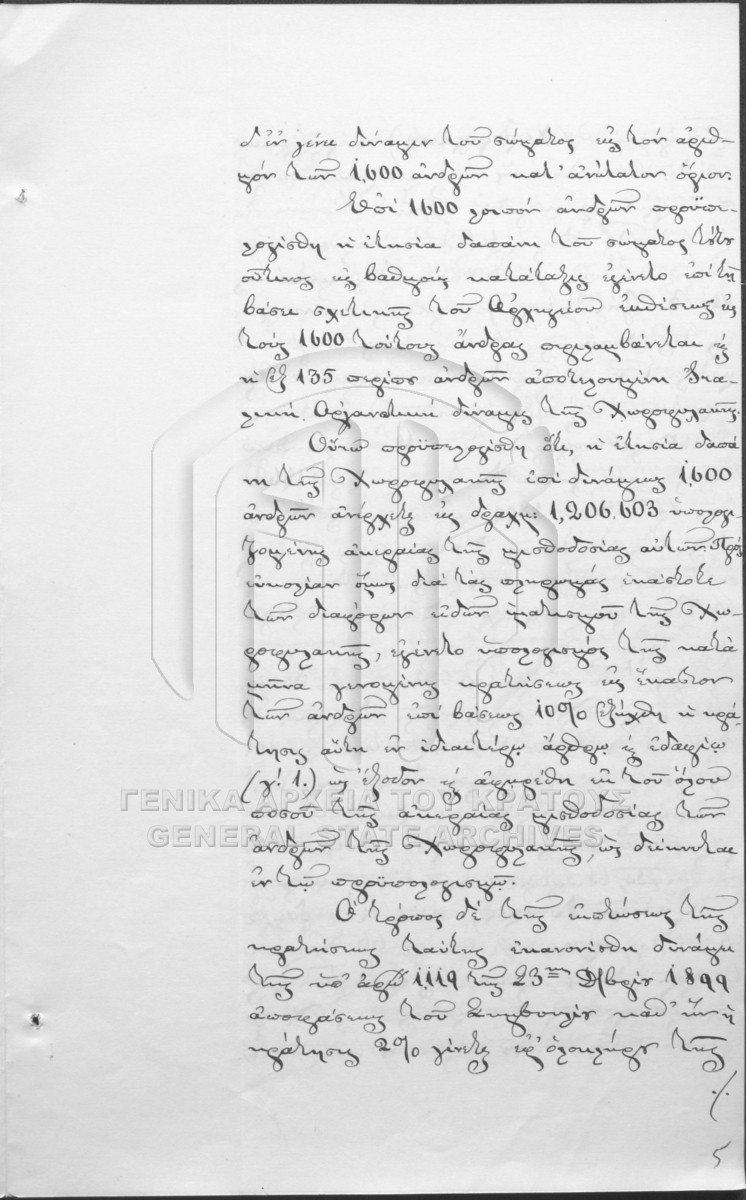 δ' ἐν γένει δύναμιν τοῦ σώματος εἰς τὸν ἀριθ-
μόν τῶν 1,600 ἀνδρῶν κατ' ἀνώτατον ὅριον.
Ἐπί 1600 λοιπόν ἀνδρῶν προϋπε-
λογίσθη ἡ ἐτησία δαπάνη τοῦ σώματος
οὗτινος εἰς βαθμούς κατάταξις ἐγένετο ἐπί τῇ
βάσει σχετικῆς τοῦ Ἀρχηγείου ἐκθέσεως εἰς
τούς 1600 τούτους ἄνδρας περιλαμβάνεται καὶ
ἡ ἐξ 135 περίπου ἀνδρῶν ἀποτελουμένη Ἰτα-
λική Ὀργανωτική δύναμις τῆς Χωροφυλακῆς.
Οὕτω προϋπελογίσθη ὅτι, ἡ ἐτησία δαπά
νη τῆς Χωροφυλακῆς ἐπί δυνάμεως 1,600
ἀνδρῶν ἀνέρχεται εἰς δραχμ. 1,206,603 ὑπολογι-
ζομένης ἀκεραίας τῆς μισθοδοσίας αὐτῶν. Πρός
εὐκολίαν ὅμως διά τάς πληρωμάς ἑκάστοτε
τῶν διαφόρων εἰδῶν ἱματισμοῦ τῆς Χω-
ροφυλακῆς, ἐγένετο ὑπολογισμός τῆς κατά
μῆνα γενομένης κρατήσεως εἰς ἕκαστον
τῶν ἀνδρῶν ἐπί βάσεως 10% ἐξήχθη ἡ κρά-
τησις αὕτη ἐν ἰδιαιτέρῳ ἄρθρῳ καὶ ἐδαφίῳ
(γ΄. 1.) ὡς ἔξοδον καὶ ἀφῃρέθη ἐκ τοῦ ὅλου
ποσοῦ τῆς ἀκεραίας μισθοδοσίας τῶν
ἀνδρῶν τῆς Χωροφυλακῆς, ὡς δείκνυται
ἐν τῷ προϋπολογισμῷ.
Ὁ τρόπος δέ τῆς ἐκπτώσεως τῆς
κρατήσεως ταύτης ἐκανονίσθη δυνάμει
τῆς ὑπ' ἀριθ. 1119 τῆς 23ης Δ/βρίου 1899
ἀποφάσεως τοῦ Συμβουλίου καθ' ἥν ἡ
κράτησις 2% γίνεται ἐφ' ὁλοκλήρου τῆς
./.
5
ΓΕΝΙΚΑ ΑΡΧΕΙΑ ΤΟΥ ΚΡΑΤΟΥΣ
GENERAL STATE ARCHIVES